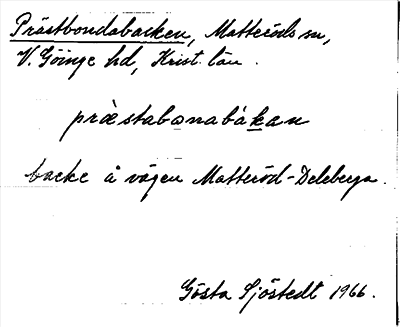 Prästbondabacken, Matteröds sn,
V. Göinge hd, Krist. län.
præ̀stabonabákan
backe å vägen Matteröd-Deleberga.
Gösta Sjöstedt 1966.